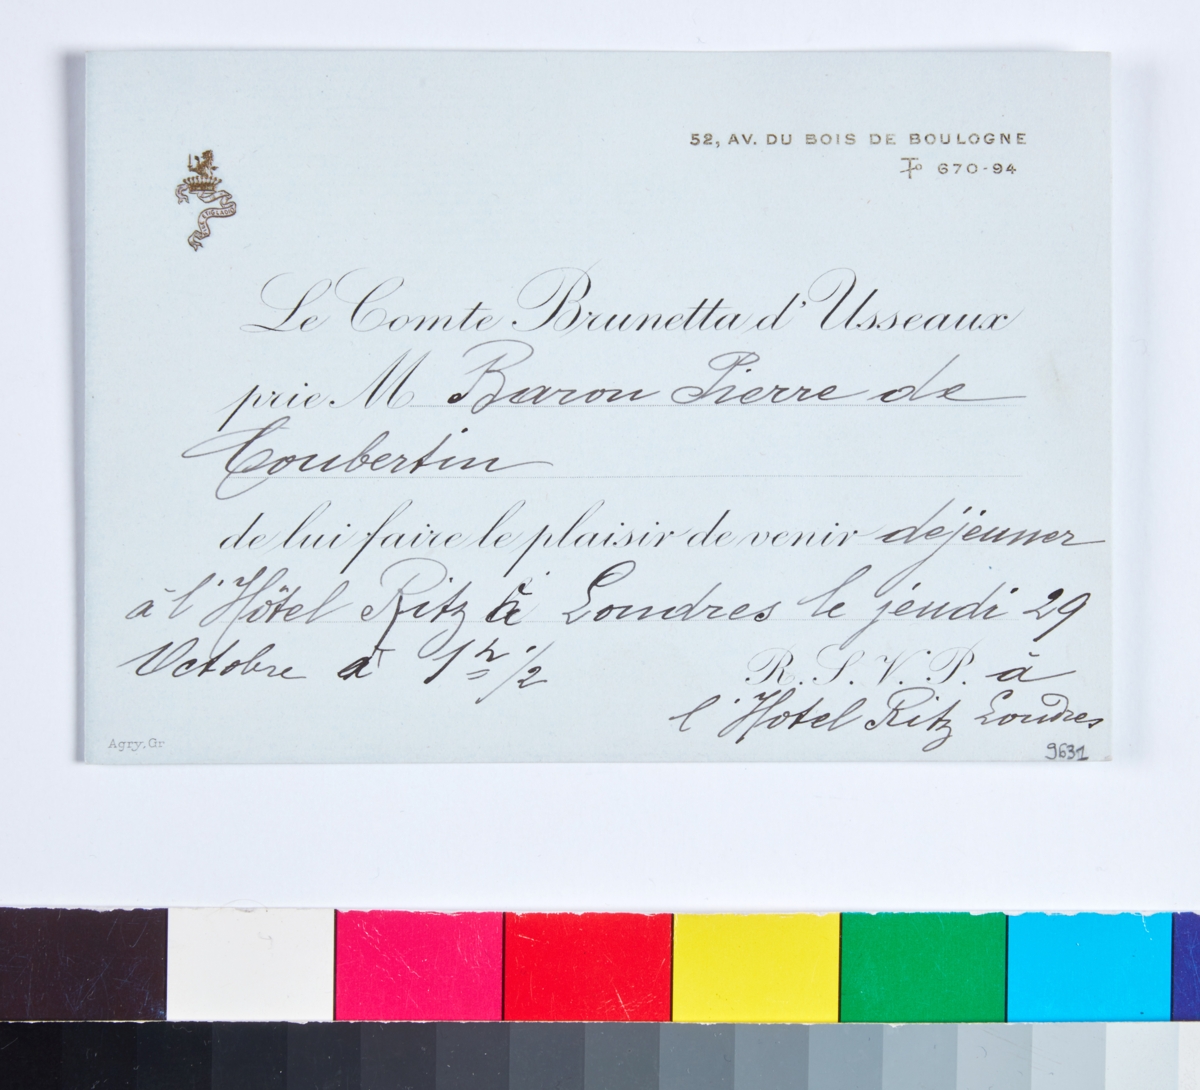 52, AV. DU BOIS DE BOULOGNE
670-94
Le Comte Brunetta d'Usseaux
prie M Baron Pierre de
Coubertin
de lui faire le plaisir de venir déjeuner
à l'Hôtel Ritz à Londres le jeudi 29
Octobre à 1 h. 1/2
R. S. V. P. à
l'Hotel Ritz Londres
Agry, Gr
9631